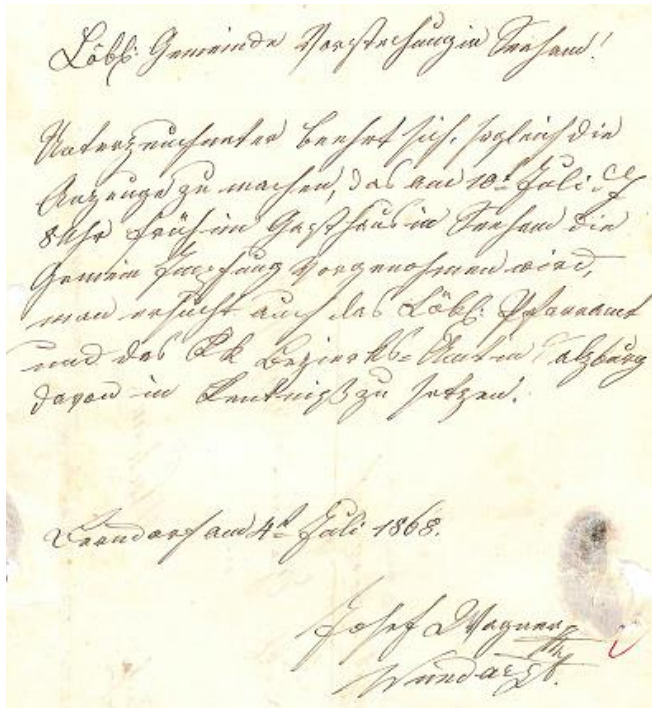 Löbl: Gemeinde Vorstehung in Seeham!
Unterzeichneter beehrt sich, sogleich die
Anzeuge zu machen, das am 10t Juli d J
8 Uhr früh im Gasthaus in Seeham die
Gemein Impfung vorgenohmen wird,
man ersucht auch das Löbl: Pfarramt
und das KK Bezierks=Amt in Salzburg
davon in Kentniß zu setzen.
Berndorf am 4t Juli 1868.
Josef Wagner
Wundarzt.